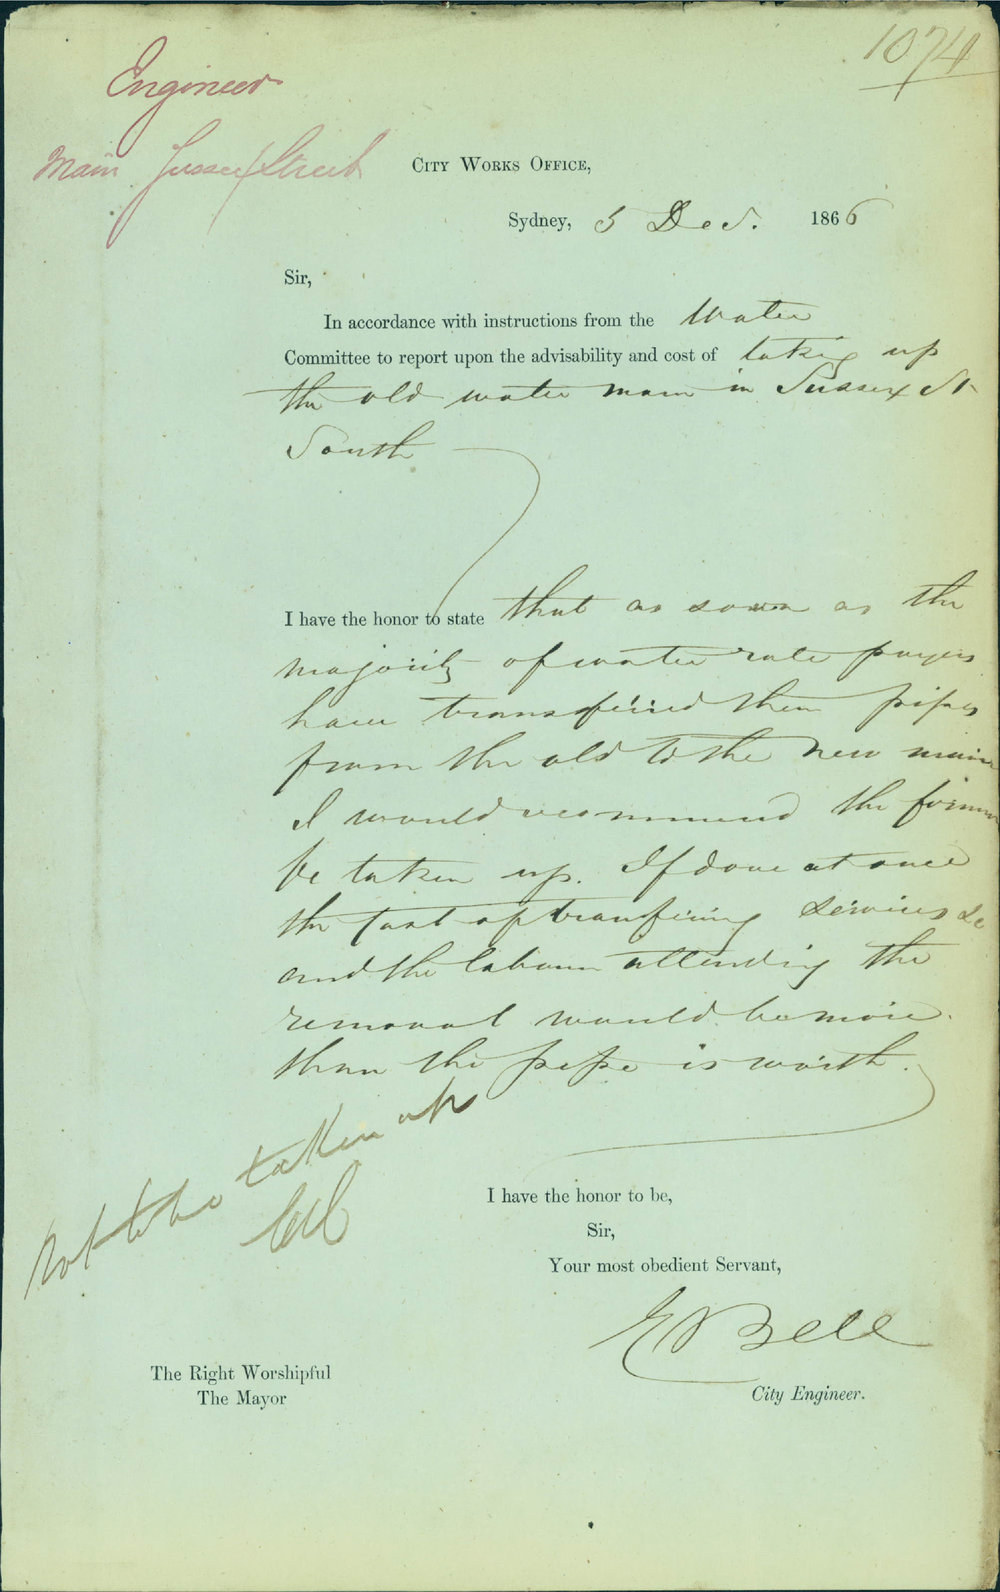 1074
Engineer
Main Sussex Street
City Works Office,
Sydney, 5 Dec. 1866
Sir,
In accordance with instructions from the Water
Committee to report upon the advisability and cost of taking up
the old water main in Sussex St
South
I have the honor to state that as soon as the
majority of water rate payers
have transferred their pipes
from the old to the new main
I would recommend the former
be taken up. If done at once
the cost of transfering services &c
and the labour attending the
removal would be more
than the pipe is worth.
Not to be taken up
I have the honor to be,
Sir,
Your most obedient Servant,
E Bell
City Engineer.
The Right Worshipful
The Mayor